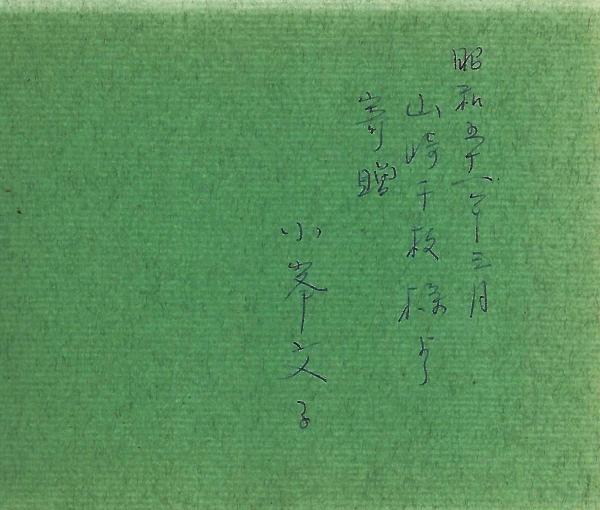 昭和五十八年三月
山崎千枝様より
寄贈
小峯文子